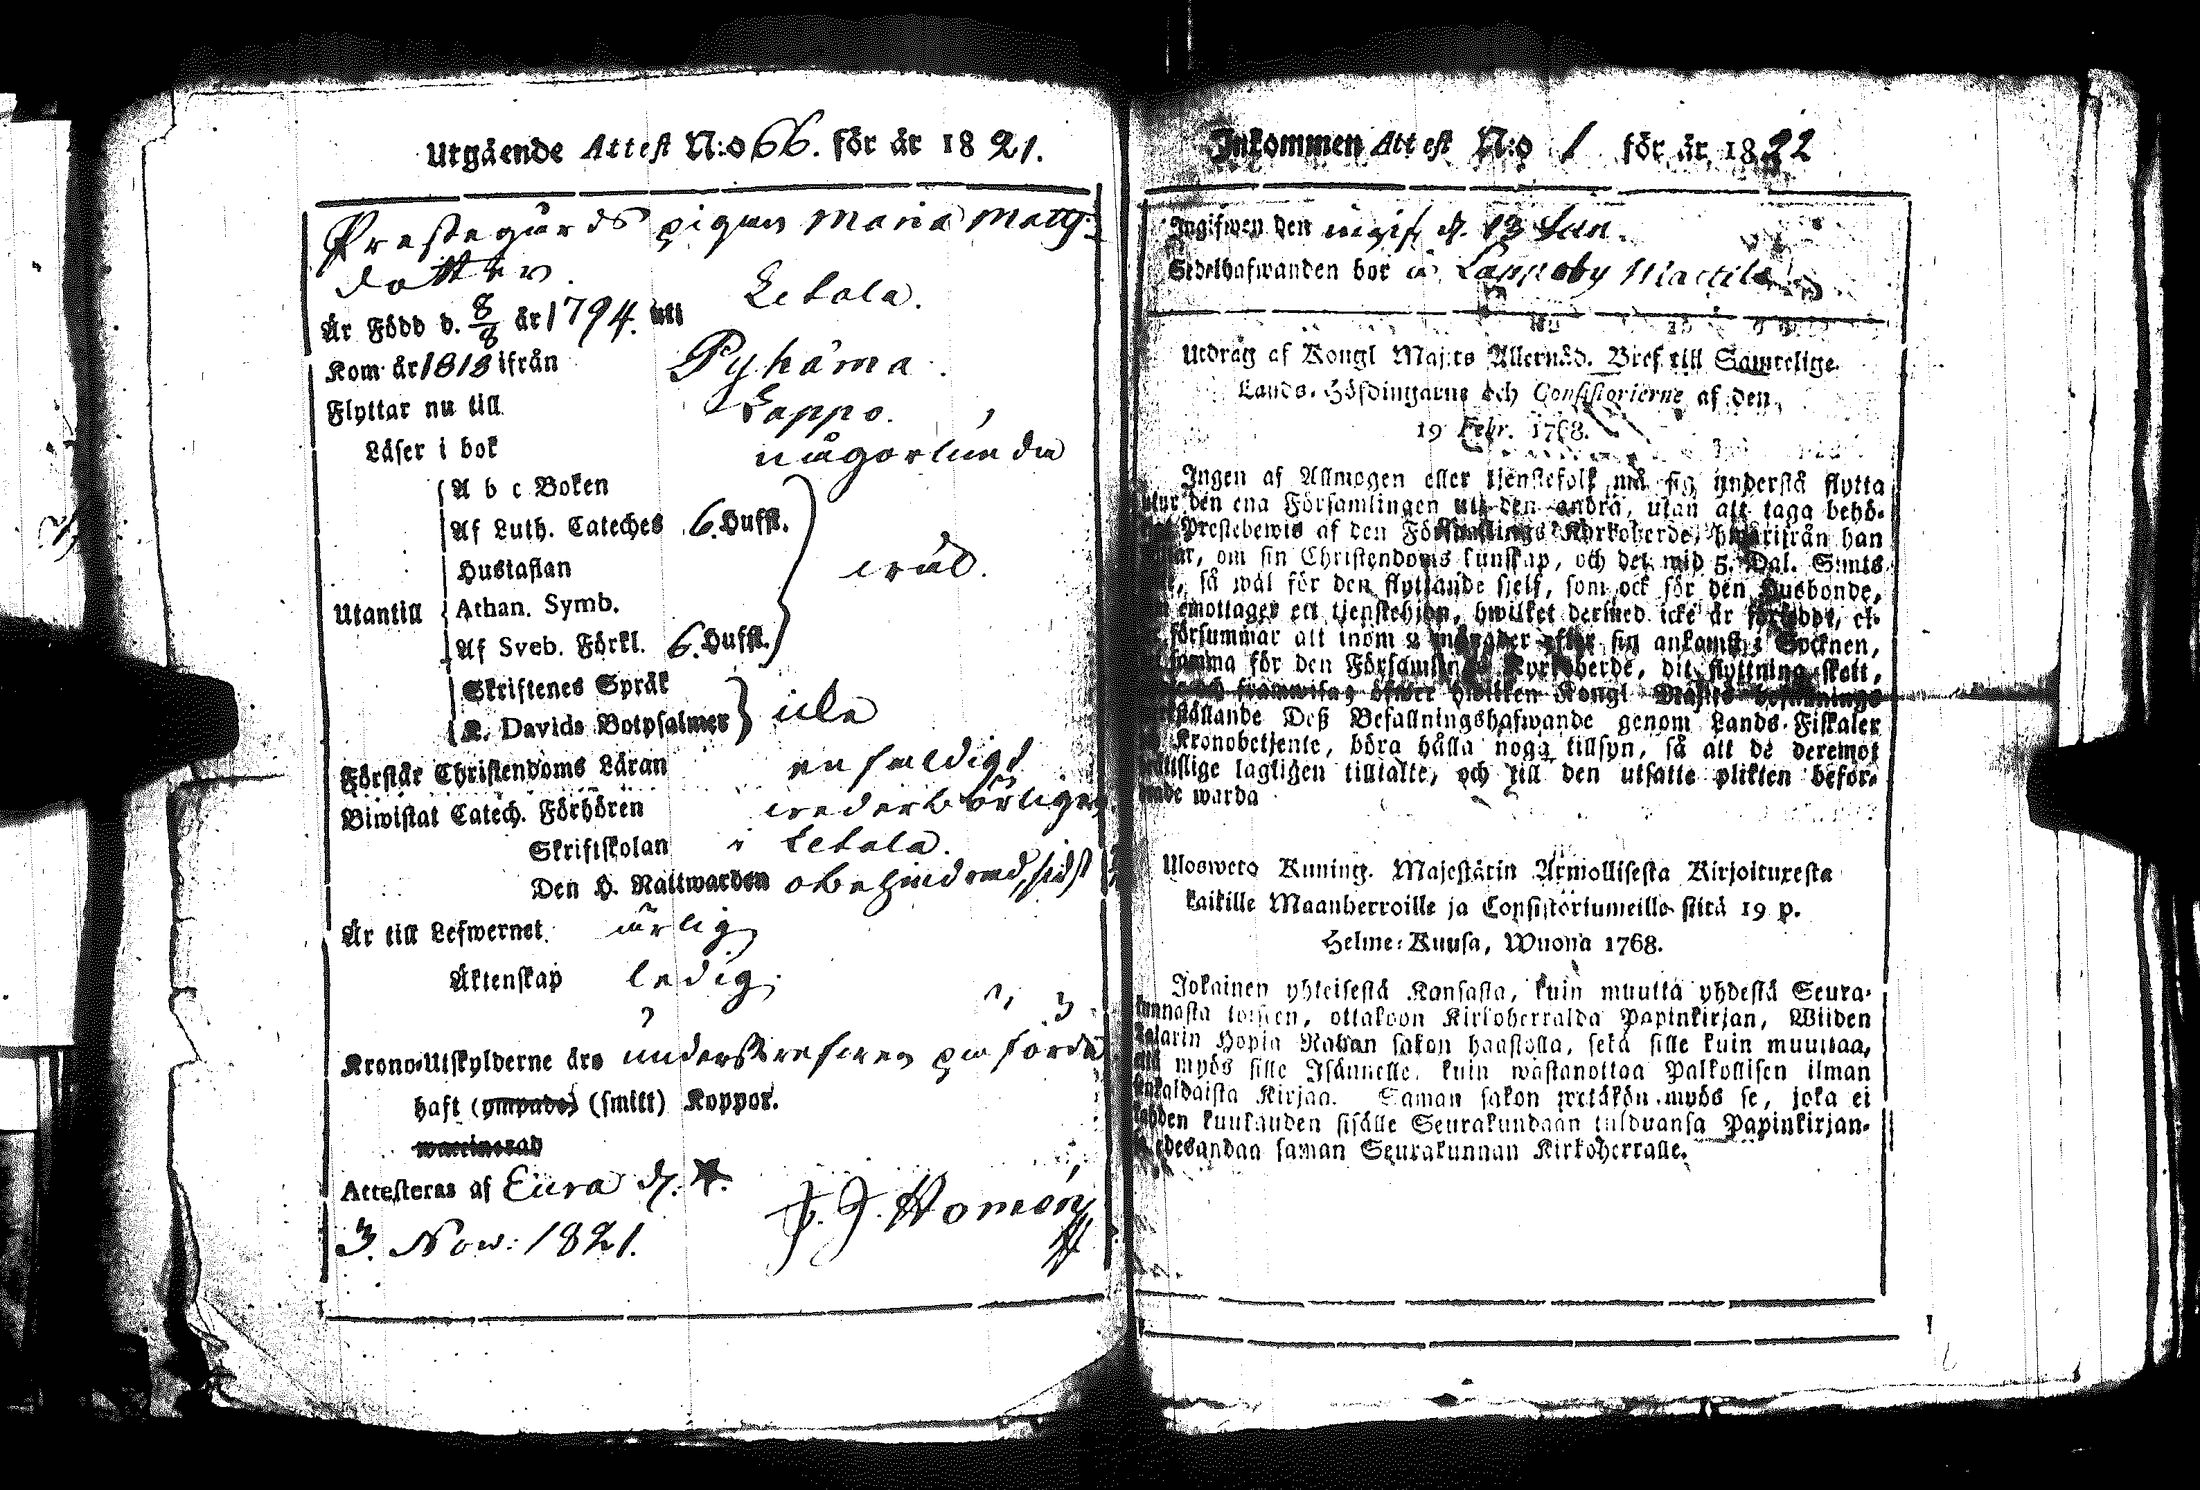 Utgående Attest N:o 66. för år 1821.
Prestegårds pigan Maria Matts-
dotter.
Är Född d. 8/8 år 1794. uti Letala.
Kom år 1818 ifrån Pyhäma.
Flyttar nu till Lappo.
Läser i bok någorlunda
A b c Boken
Af Luth. Cateches 6. Hufst.
Hustaflan
Utantill Athan. Symb. wäl.
Af Sveb. Förkl. 6. Hufst.
Skriftenes Språk
K. Davids Botpsalmer
Förstår Christendoms Läran enfaldigt
Biwistat Catech. Förhören wederbörligen
Skriftskolan i Letala.
Den H. Nattwarden obehindrad, sidst
Är till Lefwernet ärlig
Äktenskap ledig.
Krono-Utskylderne äro
haft (ympade) (smitt) Koppor.
waccinerad
Attesteras af Eura d.
3. Nov: 1821. Homén
Inkommen Attest N:o 1 för år 1822
Ingifwen den ingif. d. 13 Jan.
Sedelhafwanden bor i Lappoby Mattila
Utdrag af Kongl Maj:ts Allernåd. Bref till Samtelige
Lands-Höfdingarne och Consistorierne af den
19 Febr. 1768.
Ingen af Allmogen eller tjenstefolk må sig understå flytta
utur den ena Församlingen uti den andra, utan att taga behö-
Prestebewis af den Församlings Kyrkoherde, hwarifrån han
om sin Christendoms kunskap, och det wid 5. Dal. S:mts
så wäl för den flyttande sjelf, som ock för den Husbonde,
emottager ett tjenstehjon, hwilket dermed icke är försedt, el-
försummar att inom 2 månader efter sin ankomst i Socknen,
samma för den Församlings Kyrkoherde, dit flyttning skett,
framwisa; öfwer hwilken Kongl Maj:ts befallnings
ställande Deß Befallningshafwande genom Lands-Fiskaler
Kronobetjente, böra hålla noga tillsyn, så att de deremot
lagligen tilltalte, och till den utsatte plikten beför-
drade warda
Uloswero Kuning. Majestätin Armollisesta Kirjoituxesta
kaikille Maanherroille ja Consistoriumeille siitä 19 p.
Helme-Kuusa, Wuona 1768.
Jokainen yhteisestä Kansasta, kuin muutta yhdestä Seura-
kunnasta toiseen, ottakoon Kirkoherralda Papinkirjan, Wiiden
Talarin Hopia Rahan sakon haastolla, sekä sille kuin muuttaa,
että myös sille Isännelle, kuin wastanottaa Palkollisen ilman
senkaldaista Kirjaa. Saman sakon wetäkön myös se, joka ei
kahden kuukauden sisälle Seurakundaan tulduansa Papinkirjan-
sa edesandaa saman Seurakunnan Kirkoherralle.